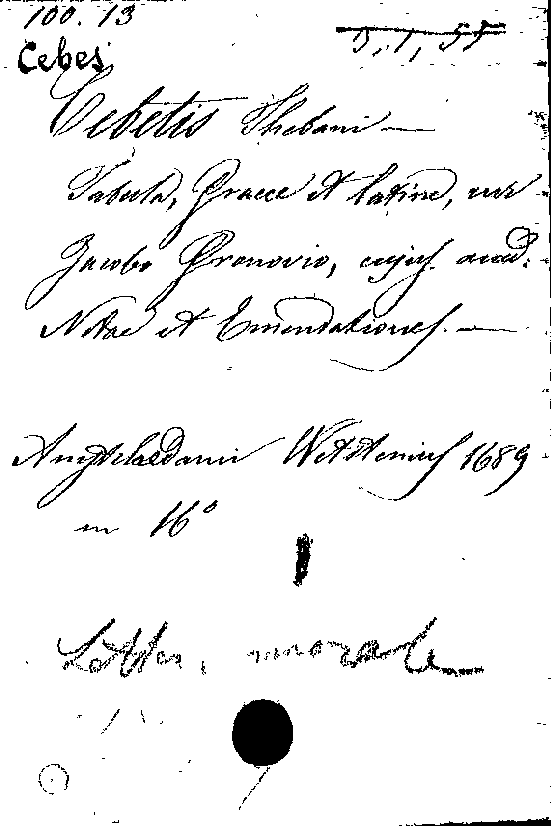 100. 13
3, 1, 55
Cebes
Cebetis Thebani —
Tabula, Graece et latine, cur
Jacobo Gronovio, cujus. acced:
Notae et Emendationes. —
Amstelaedami Wetstenius 1689
in 16°
Letter, morale